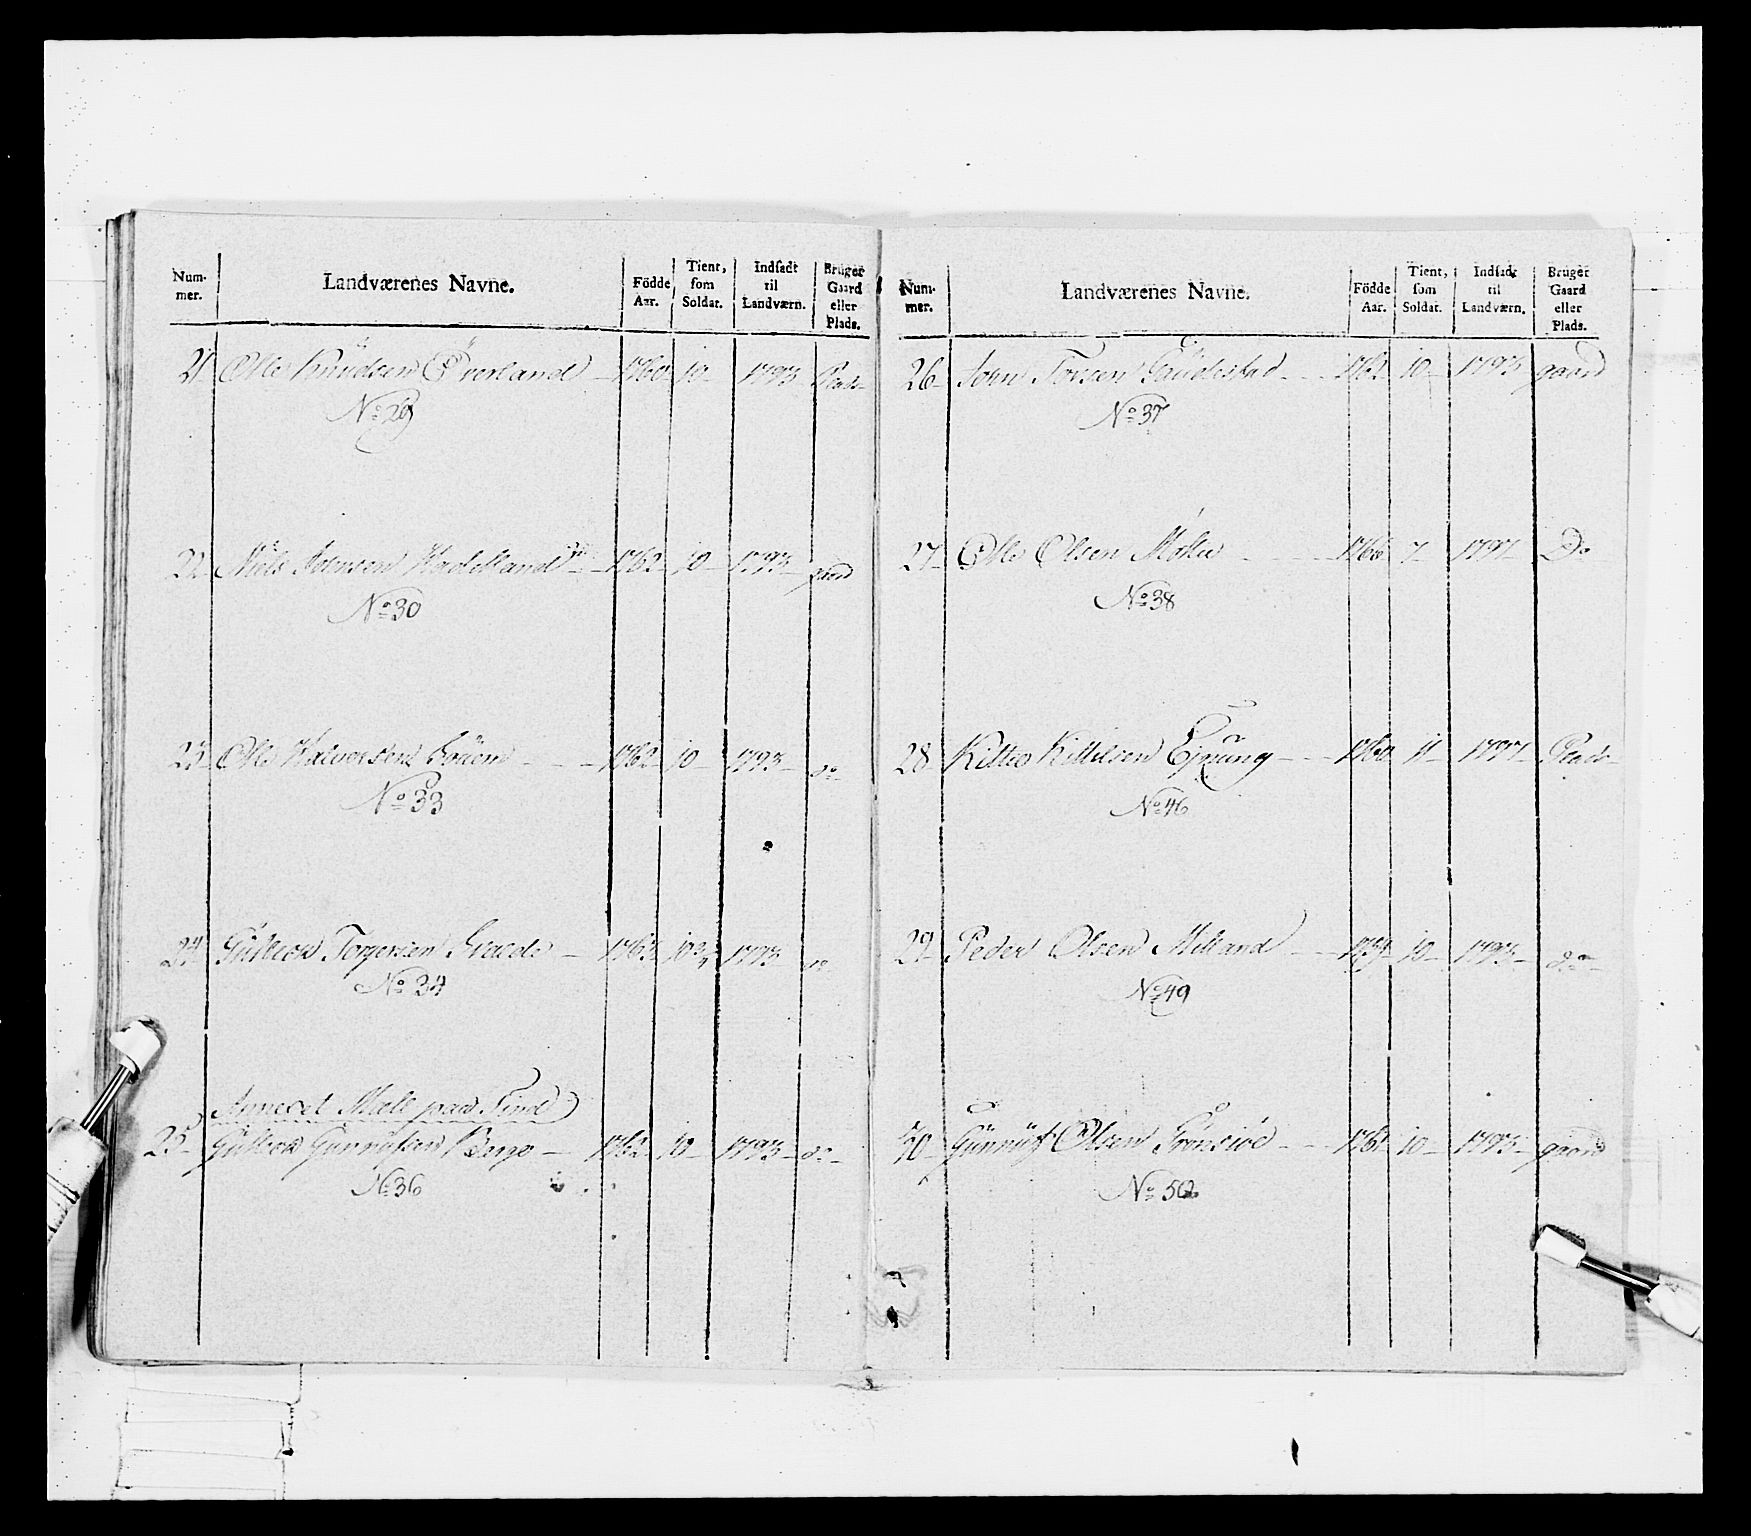 Num-
mer.
Landværenes Navne.
Födde
Aar.
Tient,
som
Soldat.
Indsadt
til
Landværn.
Bruger
Gaard
eller
Plads.
21 Ole Knudsen Överland 1760 10 1793 Plads
No 29
22 Niels Johnsen Hadeland 1762 10 1793 gaard
No 30
23 Ole Halvorsen 1762 10 1793 do
No 33
24 Gullick Torgersen 1763 10 1793 do
No 34
Annexet Mæll paa Tind
25 Gullick Gunnulsen Berge 1762 10 1793 do
No 36
Num-
mer.
Landværenes Navne.
Födde
Aar.
Tient,
som
Soldat.
Indsadt
til
Landværn.
Bruger
Gaard
eller
Plads.
26 John Torsen Gaudestad 1762 10 1793 gaard
No 37
27 Ole Olsen 1766 7 1797 Do
No 38
28 Kittel Kittelsen 1760 11 1797 Plads
No 46
29 Peder Olsen Milland 10 1793 do
No 49
30 Gunnuf Olsen 10 1793 gaard
No 50